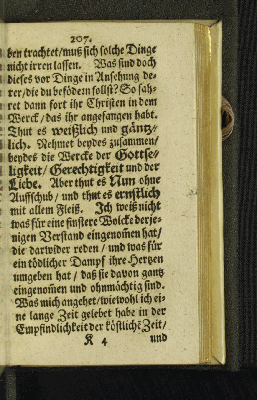 207.
ben trachtet/muß sich solche Dinge
nicht irren lassen. Was sind doch
dieses vor Dinge in Ansehung de-
rer/die du befödern sollst? So fah-
ret dann fort ihr Christen in dem
Werck/ das ihr angefangen habt.
Thut es weißlich und gäntz-
lich. Nehmet beydes zusammen/
beydes die Wercke der Gottse-
ligkeit/ Gerechtigkeit und der
Liebe. Aber thut es Nun ohne
Auffschub/ und thut es ernstlich
mit allem Fleiß. Ich weiß nicht
was für eine finstere Wolcke derje-
nigen Verstand eingenom̃en hat/
die darwider reden/ und was für
ein tödlicher Dampf ihre Hertzen
umgeben hat/ daß sie davon gantz
eingenom̃en und ohnmächtig sind.
Was mich angehet/wiewohl ich ei-
ne lange Zeit gelebet habe in der
Empfindlichkeit der köstlichẽ Zeit/
K 4 und